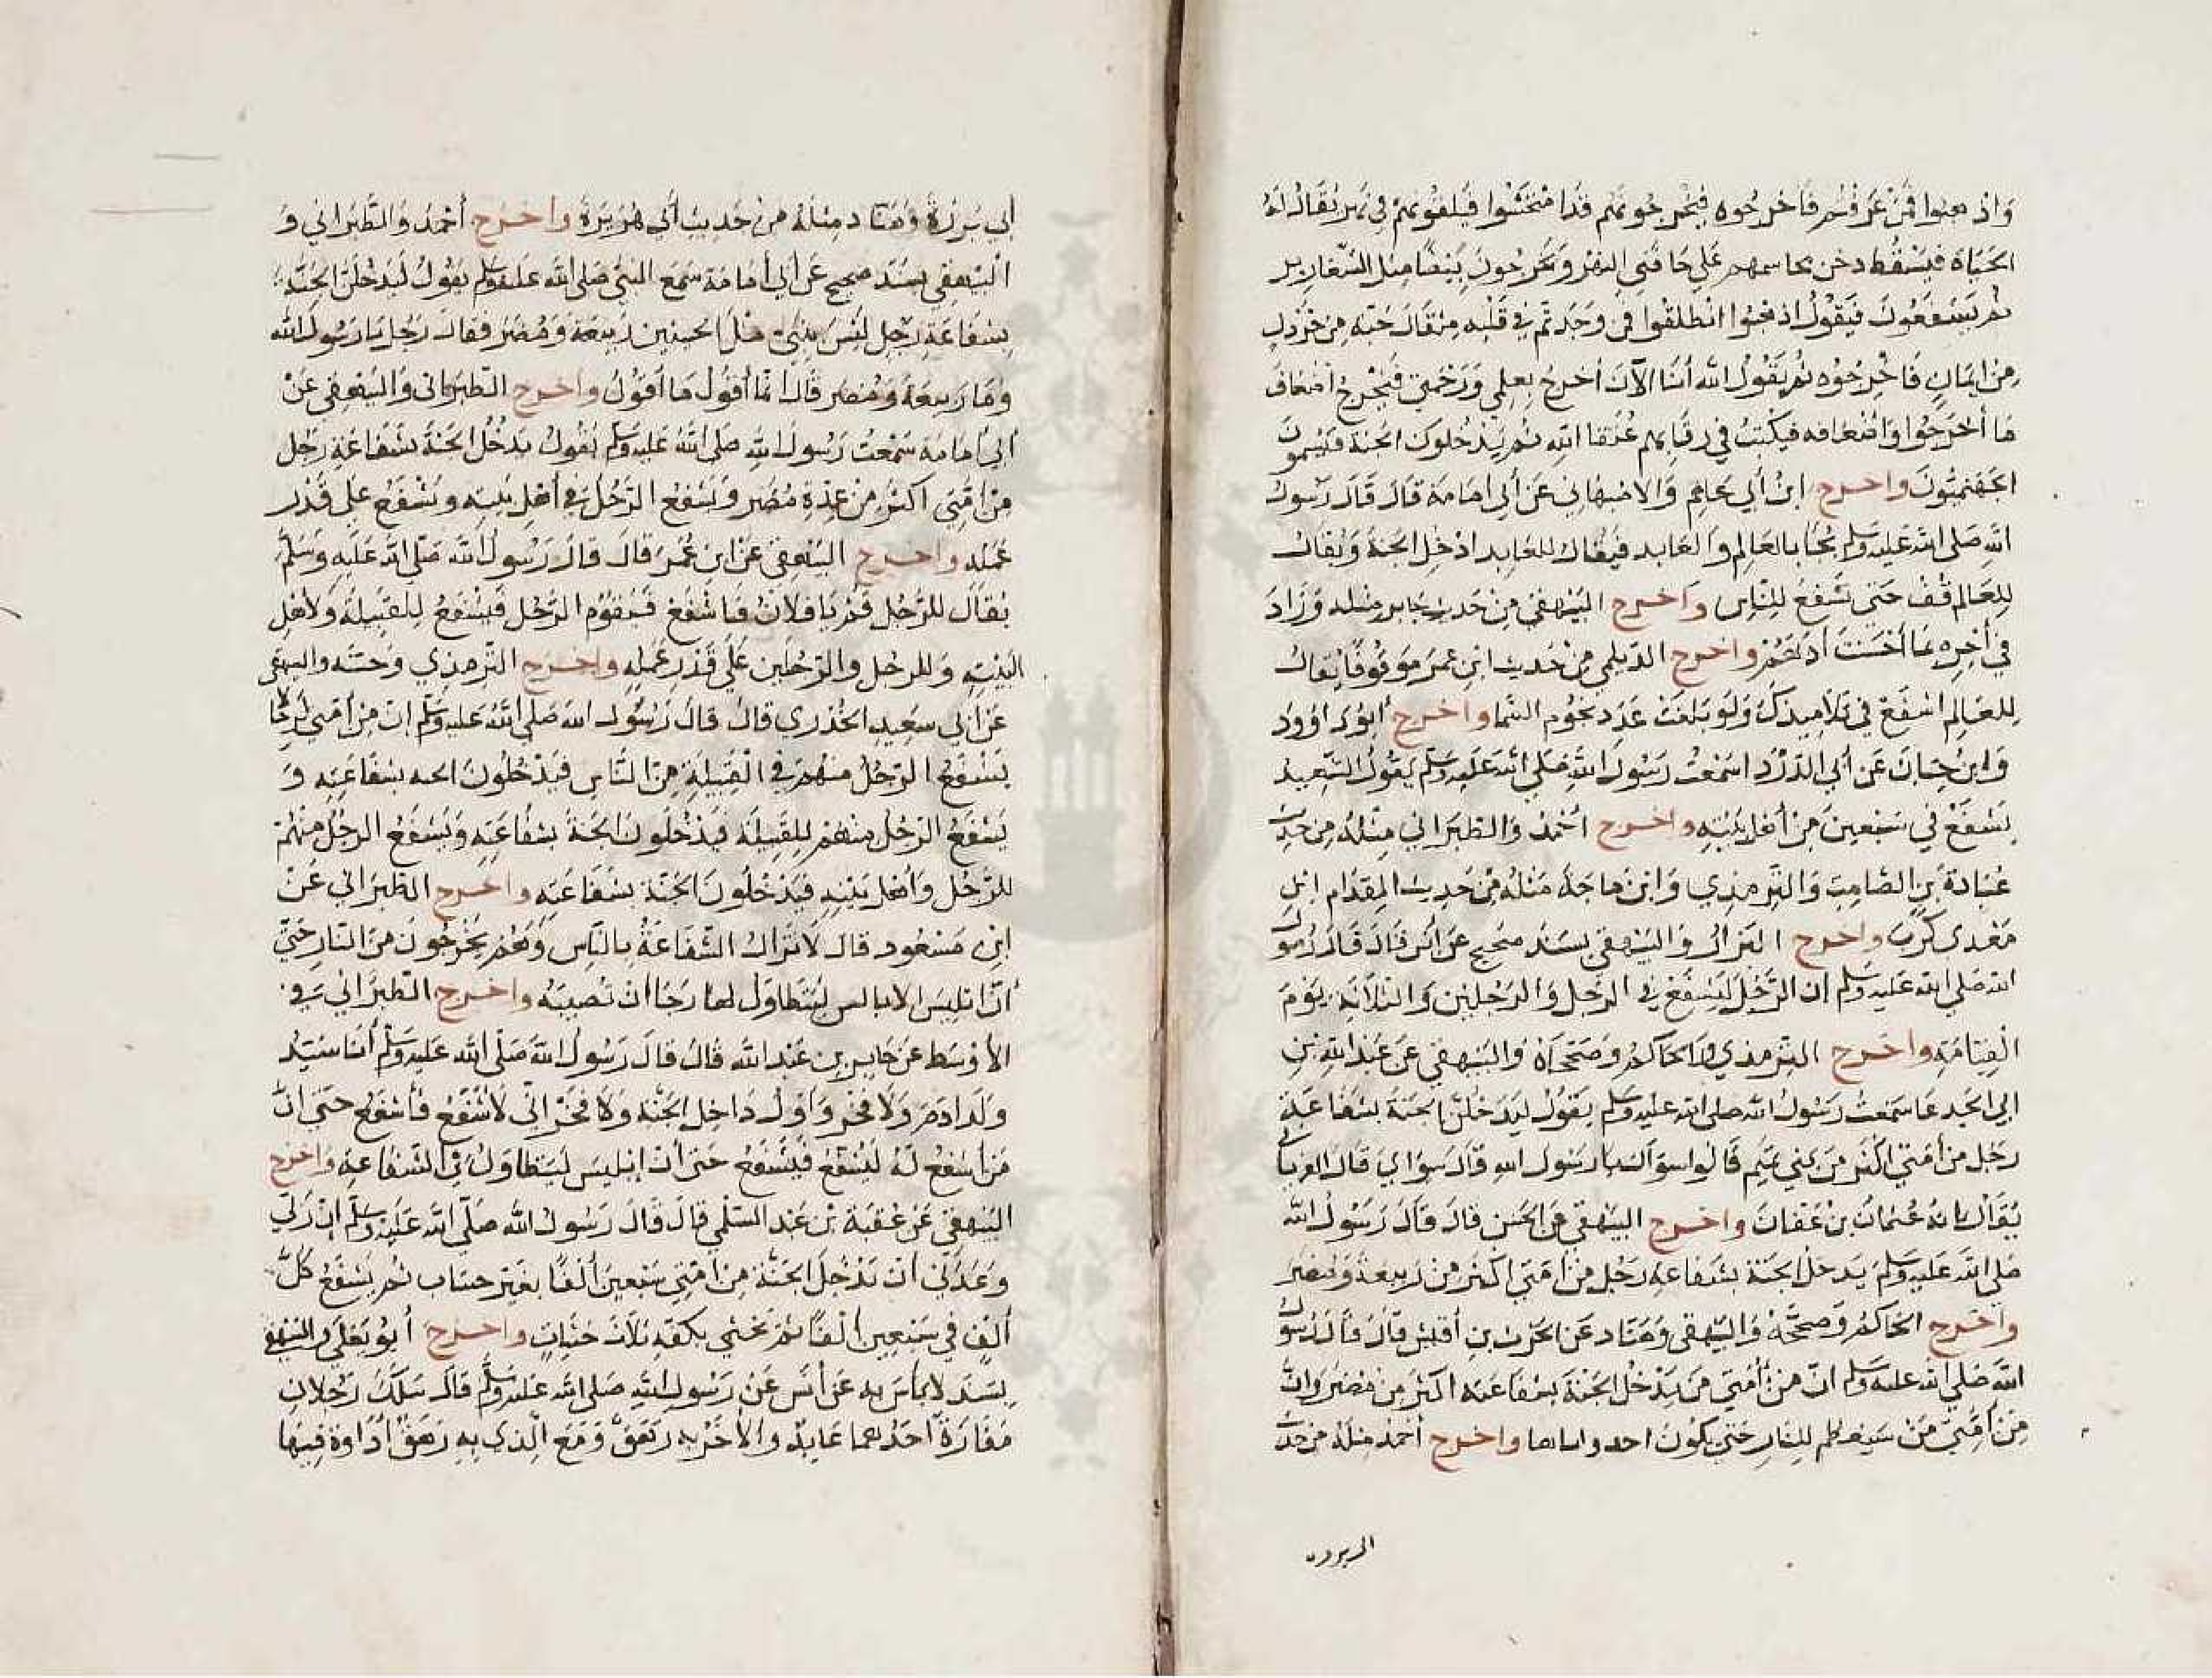 واذهبوا فمن عرفتم فاخرجوه فيخرجونهم قد امتحشوا فيلقونهم في نهر يقال له
الحياة فيسقط دخن محاسهم على حافتي النهر ويخرجون بيضا مثل الثعارير
ثم يشفعون فيقول اذهبوا انطلقوا فمن وجدتم في قلبه مثقال حبة من خردل
من ايمان فاخرجوه ثم يقول الله أنا الآن أخرج بعلمي ورحمتي فيخرج اضعاف
ما أخرجوا واضعافه فيكتب في رقابهم عتقا الله ثم يدخلون الجنة فيسمون
الجهنميون واخرج ابن أبي عاصم والاصبهاني عن أبي امامة قال قال رسول
الله صلى الله عليه وسلم يجا بالعالم والعابد فيقال للعابد ادخل الجنة ويقال
للعالم قف حتى تشفع للناس واخرج البيهقي من حديث جابر مثله وزاد
في أخره بما أحسنت أدبهم واخرج الديلمي من حديث ابن عمر موقوفا يقال
للعالم اشفع في تلاميذك ولو بلغت عدد نجوم السما واخرج أبو داوود
وابن حبان عن أبي الدردا سمعت رسول الله صلى الله عليه وسلم يقول الشهيد
يشفع في سبعين من أهل بيته واخرج احمد والطبراني مثله من حديث
عبادة بن الصامت والترمذي وابن ماجة مثله من حديث المقدام ابن
معدي كرب واخرج البزار والبيهقي بسند صحيح عن انس قال قال رسول
الله صلى الله عليه وسلم ان الرجل ليشفع في الرجل والرجلين والثلاثة يوم
القيامة واخرج الترمذي والحاكم وصححاه والبيهقي عن عبد الله بن
ابي الجدعا سمعت رسول الله صلى الله عليه وسلم يقول ليدخلن الجنة بشفاعة
رجل من أمتي اكثر من بني تميم قالوا سواك يا رسول الله قال سواي قال الفريابي
يقال انه عثمان بن عفان واخرج البيهقي عن الحسن قال قال رسول الله
صلى الله عليه وسلم يدخل الجنة بشفاعة رجل من أمتي اكثر من ربيعة ومضر
واخرج الحاكم وصححه والبيهقي وهناد عن الحرث بن أقيش قال قال رسول
الله صلى الله عليه وسلم ان من أمتي من يدخل الجنة بشفاعته اكثر من مضر وان
من أمتي من سيعظم للنار حتى يكون احد زواياها واخرج أحمد مثله من حديث
أبي برزة وهناد مثله من حديث أبي هريرة واخرج أحمد والطبراني و
البيهقي بسند صحيح عن أبي أمامة سمع النبي صلى الله عليه وسلم يقول ليدخلن الجنة
بشفاعة رجل ليس بنبي مثل الحيين ربيعة ومضر فقال رجل يا رسول الله
وما ربيعة ومضر قال انما أقول ما اقول واخرج الطبراني والبيهقي عن
أبي أمامة سمعت رسول الله صلى الله عليه وسلم يقول يدخل الجنة بشفاعة رجل
من أمتي اكثر من عدة مضر ويشفع الرجل في أهل بيته ويشفع على قدر
عمله واخرج البيهقي عن ابن عمر قال قال رسول الله صلى الله عليه وسلم
يقال للرجل قم يا فلان فاشفع فيقوم الرجل فيشفع للقبيلة ولاهل
البيت وللرجل والرجلين على قدر عمله واخرج الترمذي وحسنه والبيهقي
عن أبي سعيد الخدري قال قال رسول الله صلى الله عليه وسلم ان من أمتي لرجالا
يشفع الرجل منهم في القبيلة من الناس فيدخلون الجنة بشفاعته و
يشفع الرجل منهم للقبيلة فيدخلون الجنة بشفاعته ويشفع الرجل منهم
للرجل وأهل بيته فيدخلون الجنة بشفاعته واخرج الطبراني عن
ابن مسعود قال لا تزال الشفاعة بالناس وهم يخرجون من النار حتى
أن ابليس الابالس ليتطاول لها رجا ان تصيبه واخرج الطبراني في
الأوسط عن جابر بن عبد الله قال قال رسول الله صلى الله عليه وسلم أنا سيد
ولد ادم ولا فخر وأول داخل الجنة ولا فخر اني لأشفع فأشفع حتى ان
من أشفع له ليشفع فيشفع حتى أن إبليس ليتطاول في الشفاعة واخرج
البيهقي عن عقبة بن عبد السلمي قال قال رسول الله صلى الله عليه وسلم ان ربي
وعدني ان يدخل الجنة من أمتي سبعين ألفا بغير حساب ثم يشفع كل
ألف في سبعين ألفا ثم يحثي بكفه ثلاث حثيات واخرج أبو يعلى والبيهقي
بسند لا بأس به عن أنس عن رسول الله صلى الله عليه وسلم قال سلك رجلان
مفازة أحدهما عابد والأخر به رهق ومع الذي به رهق اداوة فيها